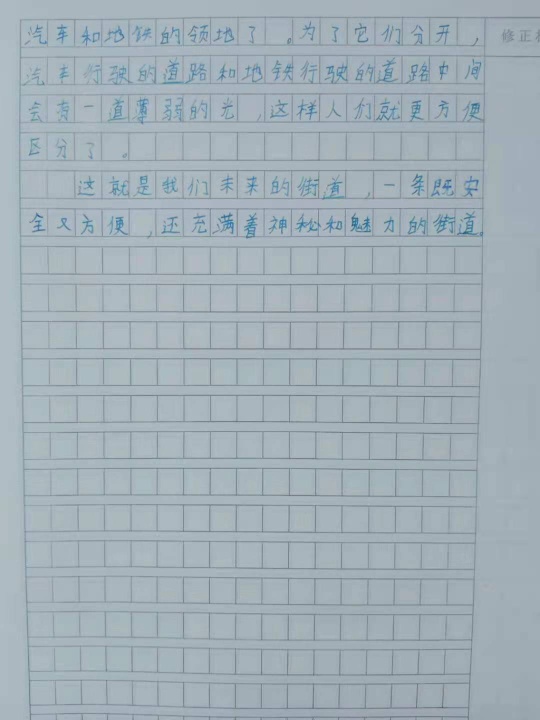 汽车和地铁的领地了。为了它们分开，
修正栏
汽车行驶的道路和地铁行驶的道路中间
会有一道薄弱的光，这样人们就更方便
区分了。
这就是我们未来的街道，一条既安
全又方便，还充满着神秘和魅力的街道。